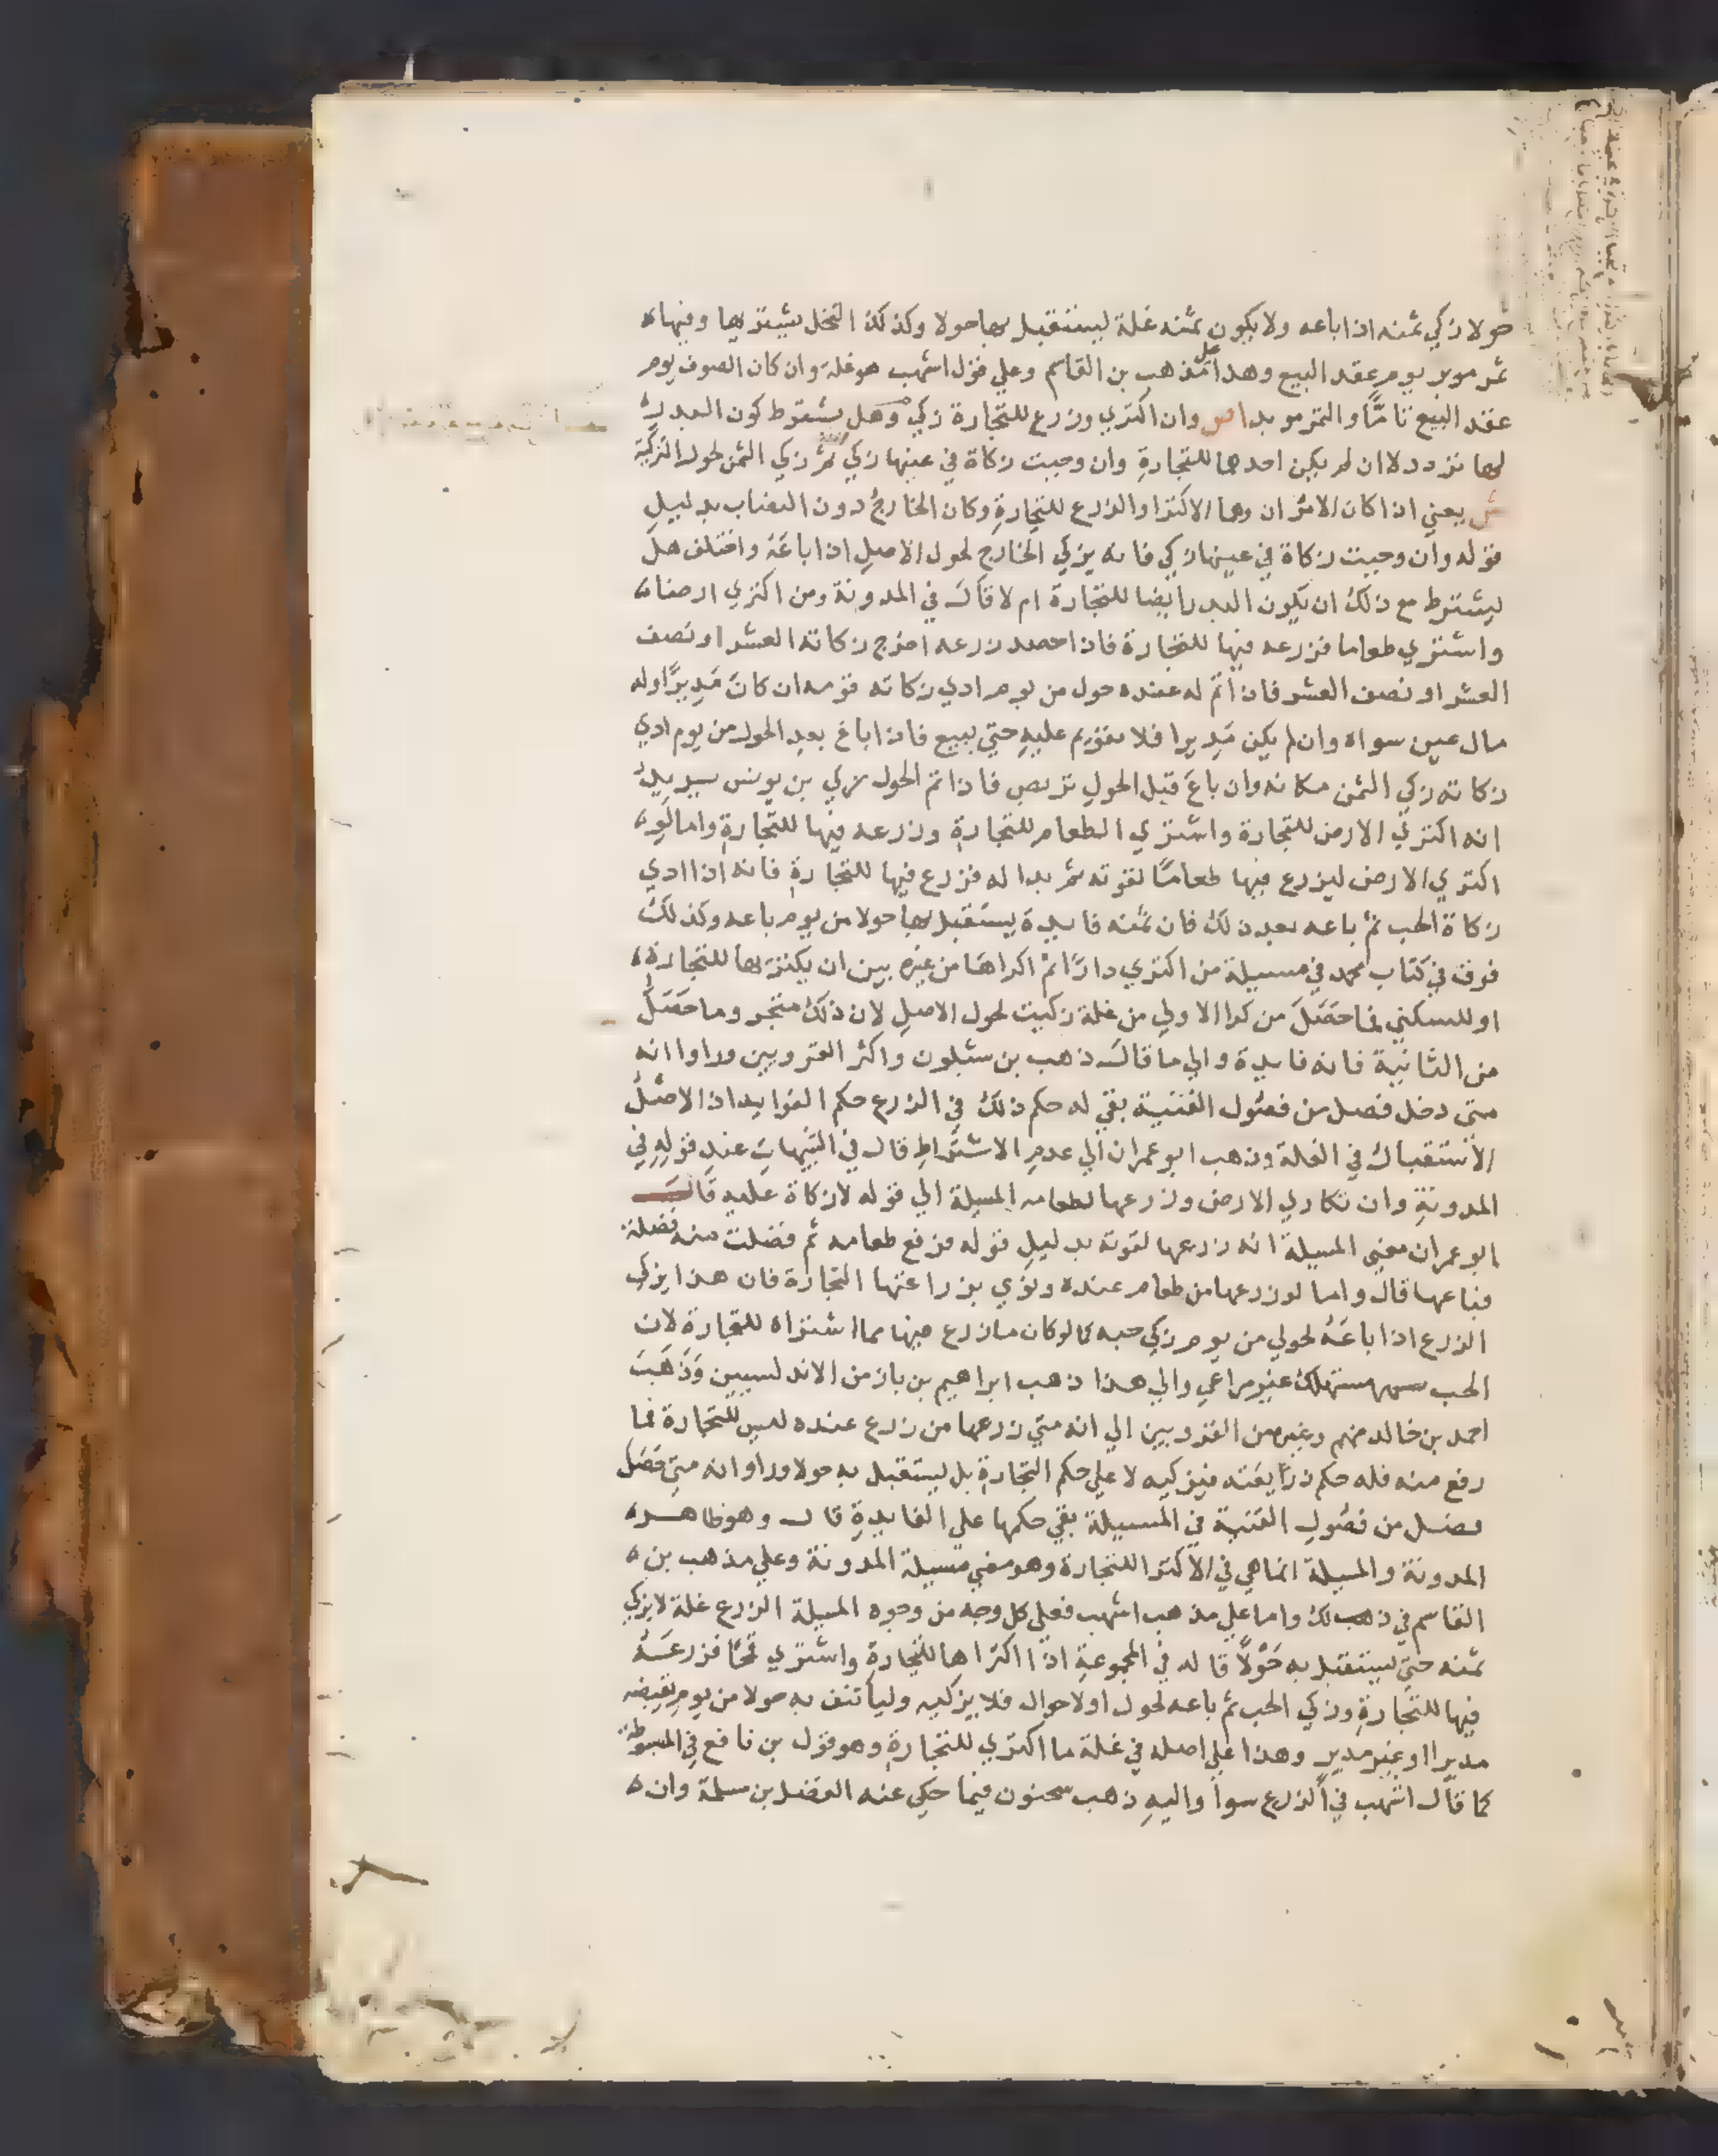 حولا زكي ثمنه اذا باعه ولا يكون ثمنه غلة ليستقبل بها حولا وكذلك النخل يشتريها وفيها
ثمر موبر يوم عقد البيع وهذا علي مذهب بن القاسم وعلي قول اشهب هو غلة وان كان الصوف يوم
عقد البيع تاما والتمر مو بدا ص وان اكتري وزرع للتجارة زكي وهل يشترط كون البدر
لها تردد لا ان لم يكن احدها للتجارة وان وجبت زكاة في عينها زكي ثم زكي الثمن لحول التزكية
ش يعني اذا كان الامران وهما الاكترا والزرع للتجارة وكان الخارج دون النصاب بدليل
قوله وان وجبت زكاة في عينها زكي فانه يزكي الخارج لحول الاصل اذا باعه واختلف هل
يشترط مع ذلك ان يكون البدر ايضا للتجارة ام لا قال في المدونة ومن اكتري ارضا
واشتري طعاما فزرعه فيها للتجارة فاذا احصد زرعه اخرج زكاته العشر او نصف
العشر او نصف العشر فاذا اتم له عنده حول من يوم ادي زكاته قومه ان كان مديرا وله
مال عين سواه وان لم يكن مديرا فلا تقويم عليه حتي يبيع فاذا باع بعد الحول من يوم ادي
زكاته زكي الثمن مكانه وان باع قبل الحول تربص فاذا تم الحول زكي بن يونس يريد
انه اكتري الارض للتجارة واشتري الطعام للتجارة وزرعه فيها للتجارة واما لو
اكتري الارض ليزرع فيها طعاما لقوته ثم بدا له فزرع فيها للتجارة فانه اذا ادي
زكاة الحب ثم باعه بعد ذلك فان ثمنه فايدة يستقبل بها حولا من يوم باعه وكذلك
فرق في كتاب محمد في مسيلة من اكتري دارا ثم اكراها من غيره بين ان يكتريها للتجارة
او للسكني فما حصل من كرا الاولي من غلة زكيت لحول الاصل لان ذلك متجر وما حصل
من الثانية فانه فايدة والي ما قال ذهب بن شبلون واكثر القرويين وراوا انه
متي دخل فصل من فصول القنية بقي له حكم ذلك في الزرع حكم الفوايد اذ الاصل
الاستقبال في الغلة وذهب ابو عمران الي عدم الاشتراط قال في التنبيهات عند قوله في
المدونة وان تكاري الارض وزرعها بطعامه المسيلة الي قوله لا زكاة عليه قال
ابو عمران معني المسيلة انه زرعها لقوته بدليل قوله فرفع طعامه ثم فضلت منه فضلة
فباعها قال واما لو زرعها من طعام عنده ونوي بزراعتها التجارة فان هذا يزكي
الزرع اذا باعه لحولي من يوم زكي حبه كما لو كان ما زرع فيها مما اشتراه للتجارة لان
الحب مستهلك غير مراعي والي هذا ذهب ابراهيم بن باز من الاندلسيين وذهب
احمد بن خالد منهم وغيره من القرويين الي انه متي زرعها من زرع عنده ليس للتجارة فما
رفع منه فله حكم زرايعته فيزكيه لا علي حكم التجارة بل يستقبل به حولا وراوا انه متي حصل
فصل من فصول القنية في المسيلة بقي حكمها علي الفايدة قال وهو ظاهر
المدونة والمسيلة انما هي في الاكترا للتجارة وهو معني مسيلة المدونة وعلي مذهب بن
القاسم في ذلك واما علي مذهب اشهب فعلي كل وجه من وجوه المسيلة الزرع غلة لا يزكي
ثمنه حتي يستقبل به حولا قاله في المجموعة اذا اكتراها للتجارة واشتري قمحا فزرعه
فيها للتجارة وزكي الحب ثم باعه لحول او لاحوال فلا يزكيه وليأتنف به حولا من يوم يقبضه
مديرا او غير مدير وهذا علي اصله في غلة ما اكتري للتجارة وهو قول بن نافع في المبسوطة
كما قال اشهب في الزرع سوا واليه ذهب سحنون فيما حكي عنه الفضل بن سلمة وان